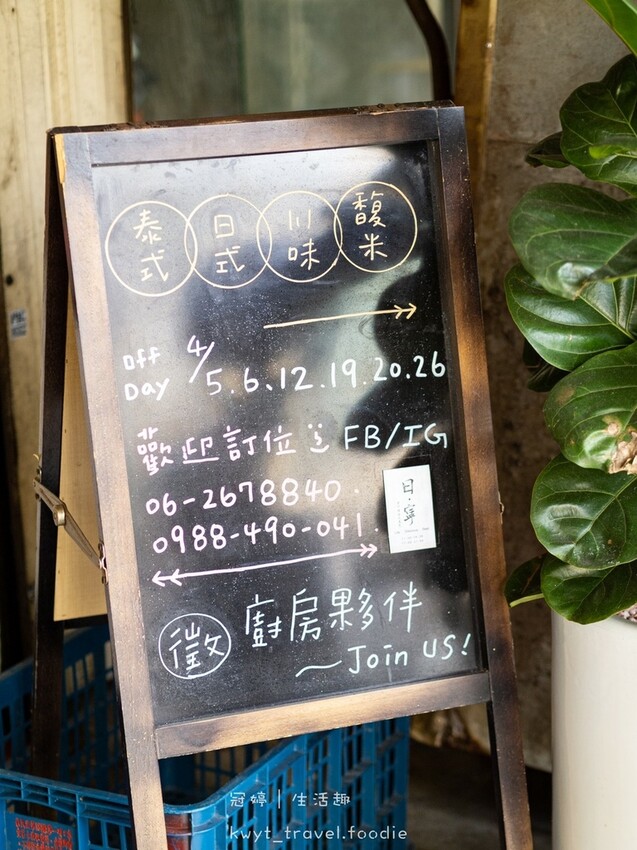 泰式 日式 川味 馥米
OFF Day 4/5.6.12.19.20.26
歡迎訂位 FB/IG
06-2678840.
0988-490-041.
日‧寧
徵 廚房夥伴
~Join US!
冠婷｜生活趣
kwyt_travel.foodie